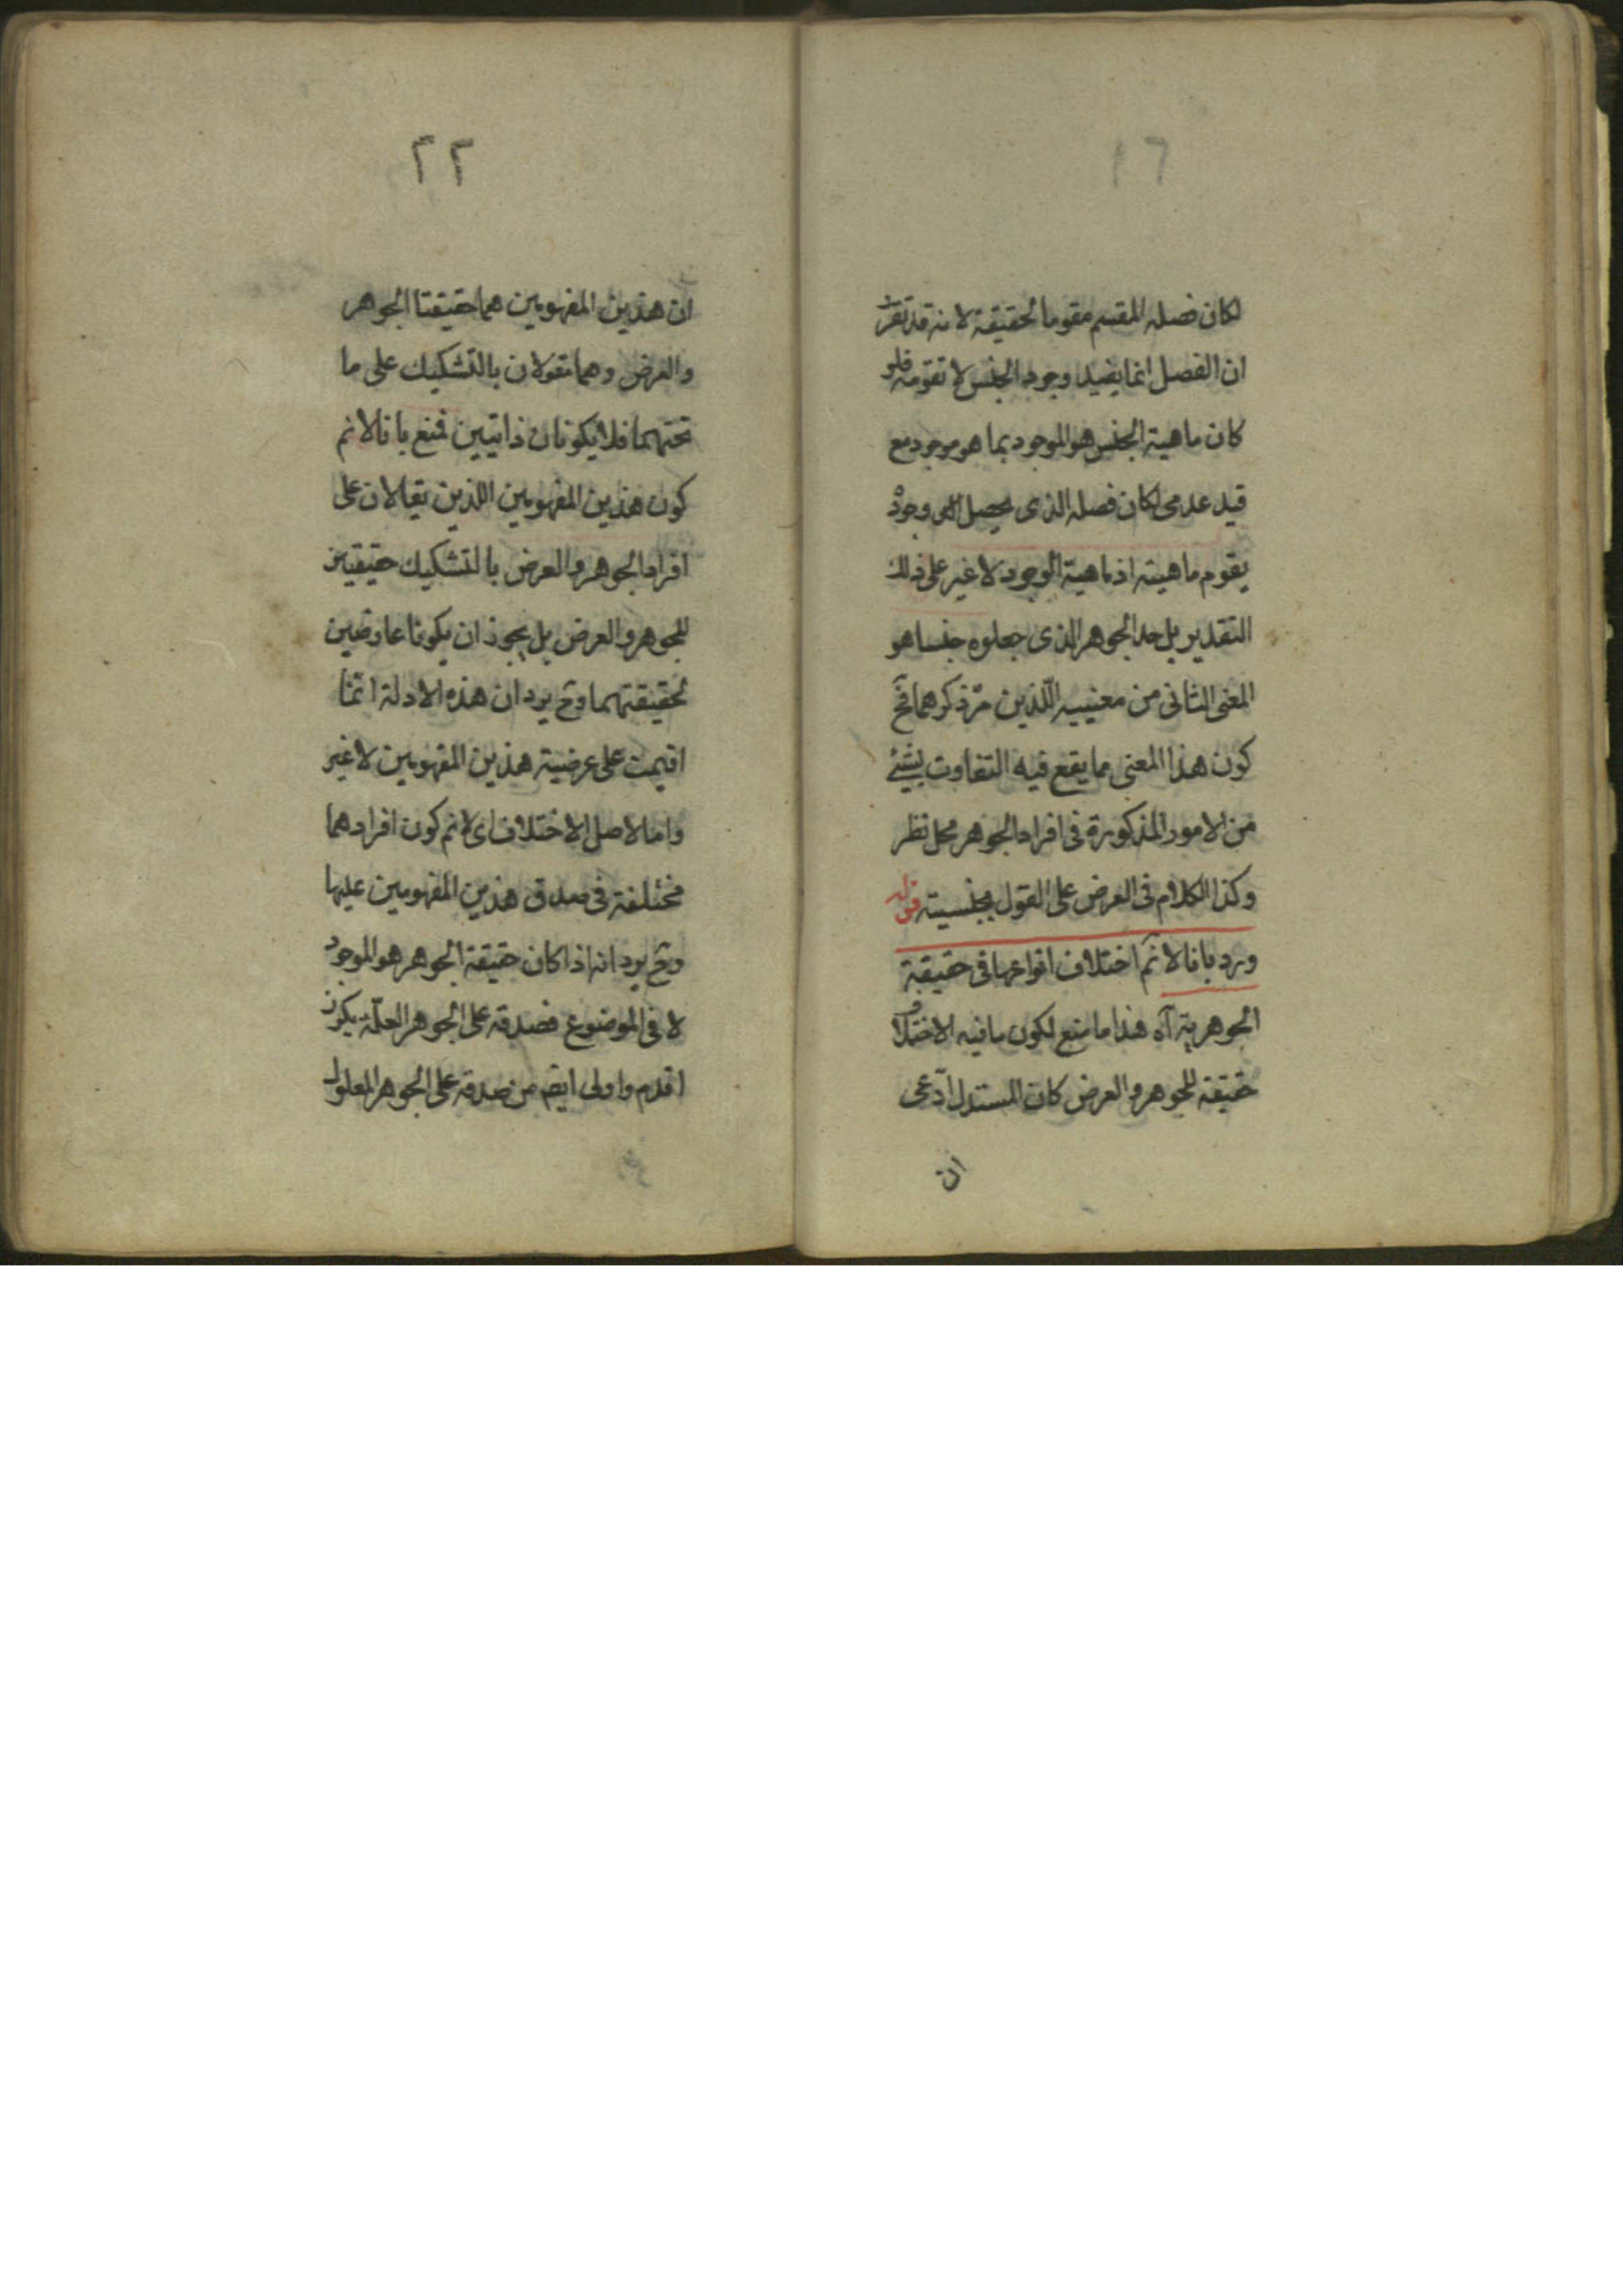 ١٦
لكان فصله المقسم مقوما لحقيقة لانه قد تقرر
ان الفصل انما يفيد وجود الجنس لا تقومه فلو
كان ماهية الجنس هو الموجود بما هو موجود مع
قيد عدمى لكان فصله الذى يحصل له وجوده
يقوم ماهيته اذ ماهية الوجود لا غير على ذلك
التقدير بل حد الجوهر الذى جعلوه جنسا هو
المعنى الثانى من معنييه اللّذين مرّ ذكرهما فح
كون هذا المعنى مما يقع فيه التفاوت بشئ
من الامور المذكورة فى افراد الجوهر محل نظر
وكذا الكلام فى العرض على القول بجنسيته قوله
ورد بانا لا نم اختلاف انواعها فى حقيقة
الجوهرية آه هذا ما منع لكون ما فيه الاختلاف
حقيقة للجوهر والعرض كان المستدل ادّعى
ان
٢٢
ان هذين المفهومين هما حقيقتا الجوهر
والعرض وهما مقولان بالتشكيك على ما
تحتهما فلا يكونان ذاتيين فمنع بانا لا نم
كون هذين المفهومين اللذين يقالان على
افراد الجوهر والعرض بالتشكيك حقيقيين
للجوهر والعرض بل يجوز ان يكونا عارضين
لحقيقتهما وح يرد ان هذه الادلة انّما
اقيمت على عرضية هذين المفهومين لا غير
واما لاصل الاختلاف اى لا نم كون افرادهما
مختلفة فى صدق هذين المفهومين عليها
وح يرد انه اذا كان حقيقة الجوهر هو الموجود
لا فى الموضوع فصدقه على الجوهر العلّة يكون
اقدم واولى ايضم من صدقه على الجوهر المعلول